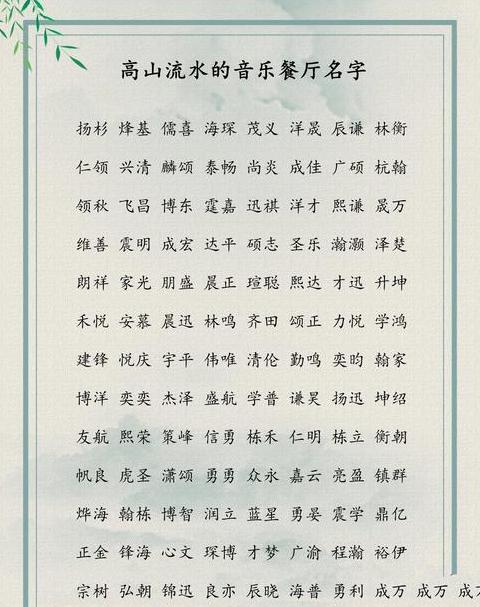 高山流水的音乐餐厅名字
扬杉 烽基 儒喜 海琛 茂义 洋晟 辰谦 林衡
仁领 兴清 麟颂 泰畅 尚炎 成佳 广硕 杭翰
领秋 飞昌 博东 霆嘉 迅祺 洋才 熙谦 晟万
维善 震明 成宏 达平 硕志 圣乐 瀚灏 泽楚
朗祥 家光 朋盛 晨正 瑄聪 熙达 才迅 升坤
禾悦 安慕 晨迅 林鸣 齐田 颂正 力悦 学鸿
建锋 悦庆 宇平 伟唯 清伦 勤鸣 奕昀 翰家
博洋 奕奕 杰泽 盛航 学普 谦昊 扬迅 坤绍
友航 熙荣 策峰 信勇 栋禾 仁明 栋立 衡朝
帆良 虎圣 潇颂 勇勇 众永 嘉云 亮盈 镇群
烨海 翰栋 博智 润立 蓝星 勇晏 震学 鼎亿
正金 锋海 心文 琛博 才梦 广渝 程瀚 裕伊
宗树 弘朝 锦迅 良亦 辰晓 海普 勇利 成万 成万 成万